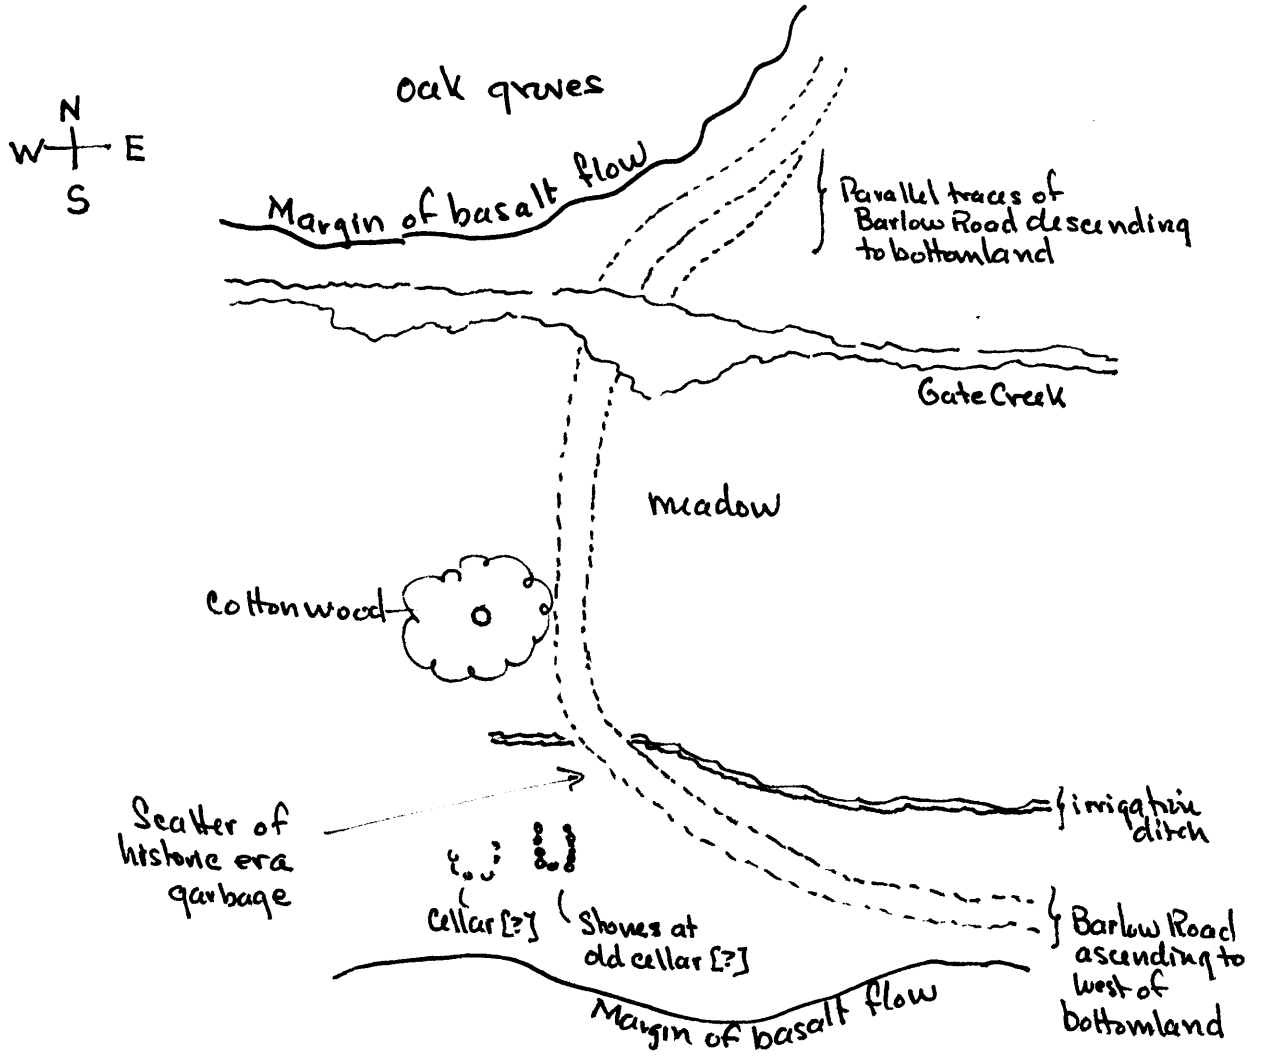 Oak groves
N
W E
S
Margin of basalt flow
Parallel traces of
Barlow Road descending
to bottomland
Gate Creek
meadow
Cottonwood
irrigation
ditch
Scatter of
historic era
garbage
Cellar [?]
Stones at
old cellar [?]
Barlow Road
ascending to
west of
bottomland
Margin of basalt flow